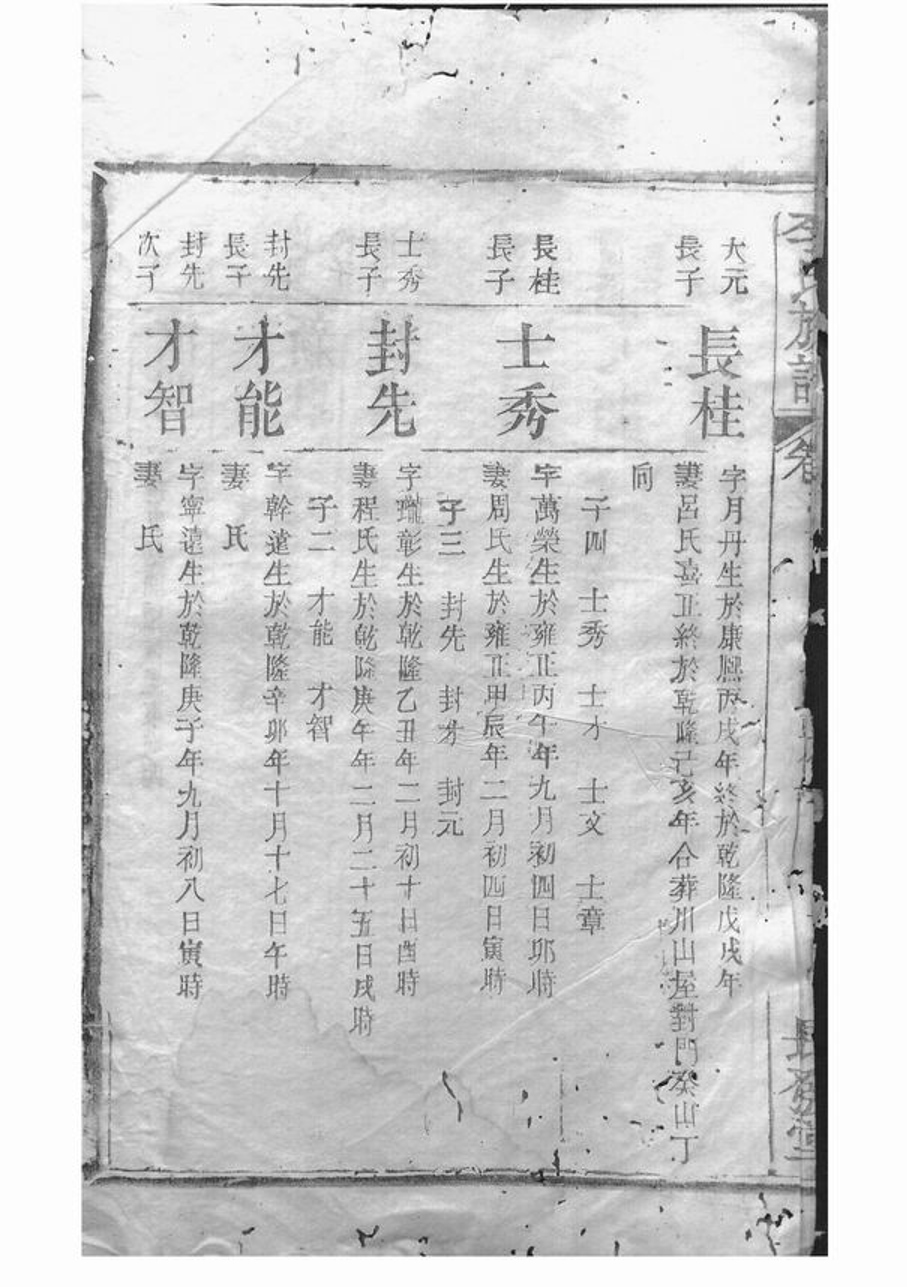 李氏族譜
卷
長發堂
大元
長子
長桂
字月丹生於康熙丙戌年終於乾隆戊戌年
妻呂氏喜正終於乾隆己亥年合葬川山屋對門癸山丁
向
子四 士秀 士才 士文 士章
長桂
長子
士秀
字萬榮生於雍正丙午年九月初四日卯時
妻周氏生於雍正甲辰年二月初四日寅時
子三 封先 封才 封元
士秀
長子
封先
字瓏彰生於乾隆乙丑年二月初十日酉時
妻程氏生於乾隆庚午年二月二十五日戌時
子二 才能 才智
封先
長子
才能
字幹遠生於乾隆辛卯年十月十七日午時
妻 氏
封先
次子
才智
字寧遠生於乾隆庚子年九月初八日寅時
妻 氏